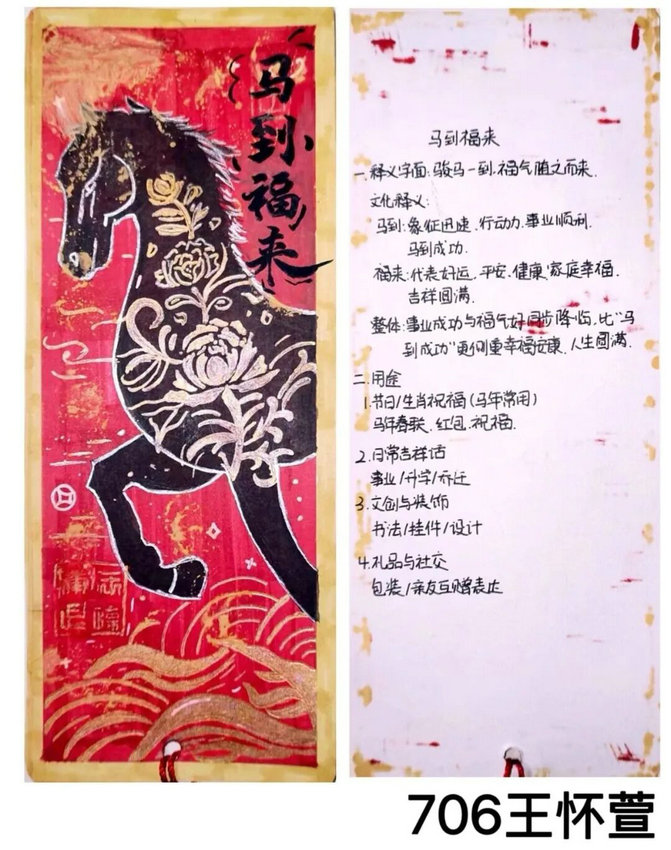 马到福来
马到福来
一.释义字面:骏马一到,福气随之而来.
文化释义:
马到:象征迅速、行动力、事业顺利、
马到成功.
福来:代表好运、平安、健康、家庭幸福、
吉祥圆满.
整体:事业成功与福气好同步降临,比“马
到成功”更侧重幸福安康、人生圆满.
二.用途
1.节日/生肖祝福(马年常用)
马年春联、红包、祝福.
2.日常吉祥话
事业/升学/乔迁
3.文创与装饰
书法/挂件/设计
4.礼品与社交
包装/亲友互赠表达
706王怀萱